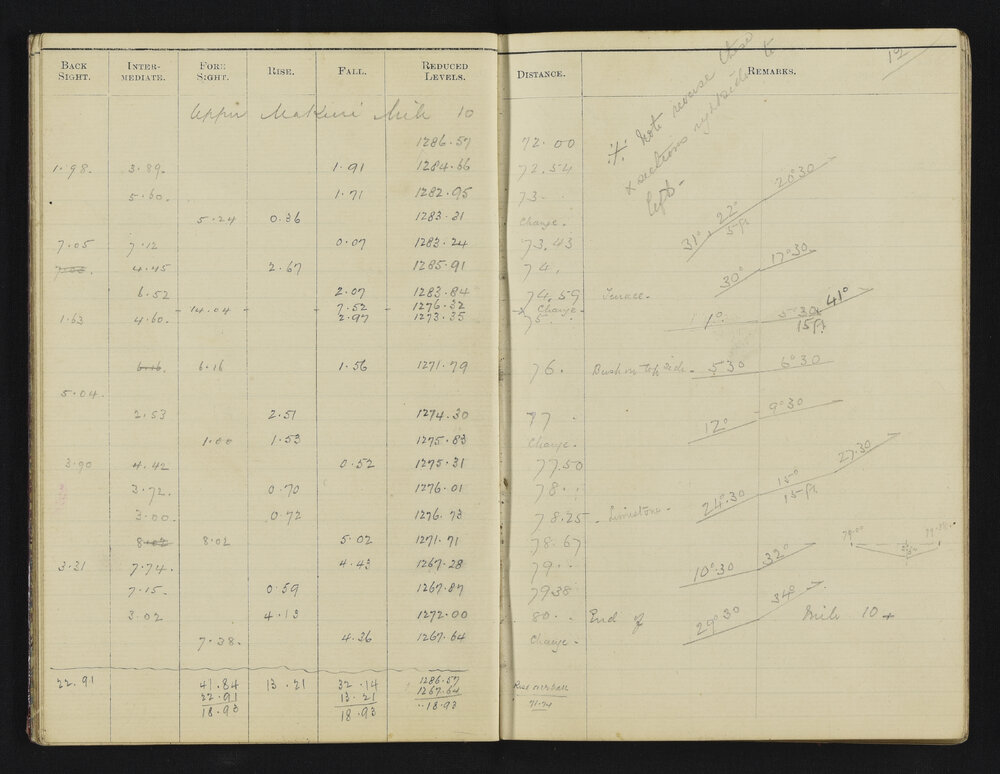 BACK SIGHT. INTER-MEDIATE. FORE SIGHT. RISE. FALL. REDUCED LEVELS. DISTANCE. REMARKS. 12
Upper Makuri Mile 10
Note reverse these
x sections right side to
left -
1286.57 72.00
1.98. 3.89. 1.91 1284.66 72.54
5.60. 1.71 1282.95 73. 31° 22° 5 ft 26°30
5.24 0.36 1283.31 Change.
7.05 7.12 0.07 1283.24 73.43
7.03. 4.45 2.67 1285.91 74. 30° 17°30
6.52 2.07 1283.84 74.59 Terrace.
14.04 7.52 1276.32 x Change
1.63 4.60. 2.97 1273.35 75. 1° 5°30 15 ft 41°
6.16 6.16 1.56 1271.79 76. Bush on top side. 5 30 6°30
5.04.
2.53 2.51 1274.30 77 12° 9°30
1.00 1.53 1275.83 Change.
3.90 4.42 0.52 1275.31 77.50
3.72. 0.70 1276.01 78. 24°.30 15° 15 ft 27.30
3.00. 0.72 1276.73 78.25 Limestone.
8.02 8.02 5.02 1271.71 78.67 79.00 79.38.
3.31 7.74. 4.43 1267.28 79. 10°.30 32°
7.15. 0.59 1267.87 79.38
3.02 4.13 1272.00 80. End of 29°30 34° Mile 10 +
7.38. 4.36 1267.64 Change.
22.91 41.84 13.21 32.14 1286.57 Rise over fall
22.91 13.21 1267.64 71.74
18.93 18.93 18.93